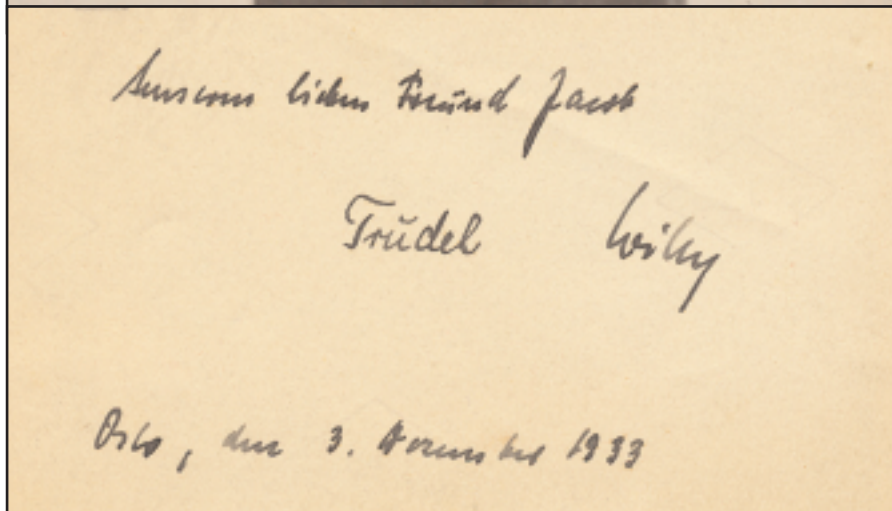 Unserem lieben Freund Jacob
Trudel Willy
Oslo, den 3. November 1933